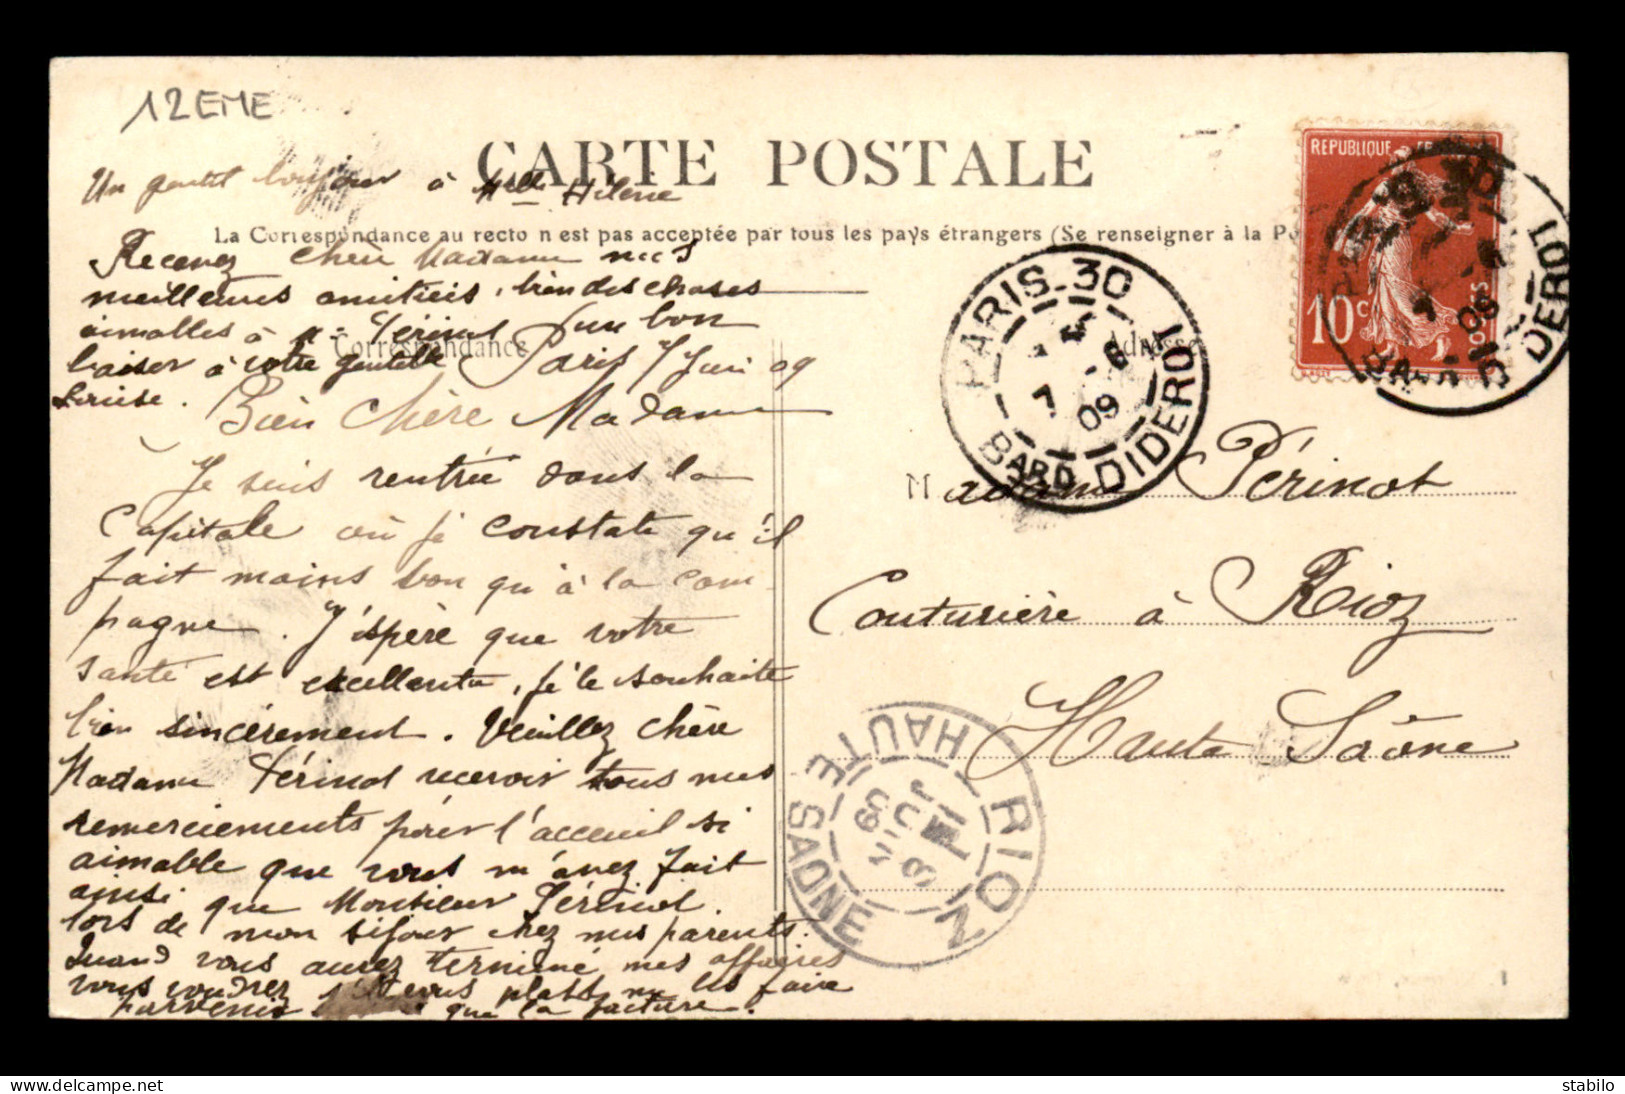 12EME
CARTE POSTALE
Un gentil bonjour à Melle Hélène
La Correspondance au recto n'est pas acceptée par tous les pays étrangers (Se renseigner à la Po
Recevez chère Madame mes
meilleures amitiés, bien des choses
aimables à Mr Périnot, un bon
baiser à votre gentille
Louise.
Correspondance
Adresse
Paris 7 Juin 09
Bien chère Madame
Je suis rentrée dans la
Capitale où je constate qu'il
fait moins bon qu'à la cam
pagne. J'espère que votre
santé est excellente, je le souhaite
bien sincèrement. Veuillez chère
Madame Périnot recevoir tous mes
remerciements pour l'acceuil si
aimable que vous m'avez fait
ainsi que Monsieur Périnot.
lors de mon séjour chez mes parents.
Quand vous aurez terminé mes affaires
vous voudrez s'il vous plaît me les faire
parvenir que la facture.
REPUBLIQUE FR
10c
PARIS-30
7 -6
09
BARD DIDEROT
09
BARD DIDEROT
Madame Périnot
Couturière à Rioz
Haute Saône
RIOZ
HAUTE SAONE
8
JUIN
09
stabilo